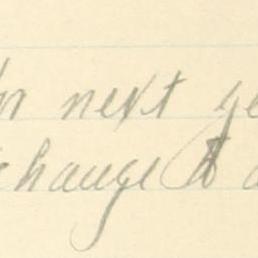 next ye
change it